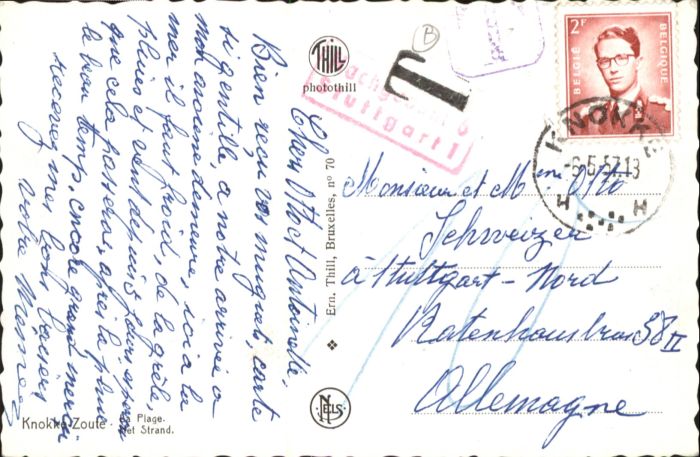 Cher Otto et Antoinette,
Bien reçu vos muguet, carte
si gentille, a notre arrivée a
mon ancienne demeure, ici a la
mer il faut froid, de la grèle,
pluies et vent depuis jours, espérons
que cela passera, après la pluie
le beau temps, encore grand merci
recevez mes bons baisers
votre
THILL
photothill
Ern. Thill, Bruxelles, nº 70
NELS
Knokke-Zoute
La Plage.
Het Strand.
B
T
Nachgebühr
Stuttgart 1
2F
BELGIË
BELGIQUE
KNOKKE
-6.5.57.13
H H
Monsieur et Mme Otto
Schweizer
à Stuttgart-Nord
58 II
Allemagne